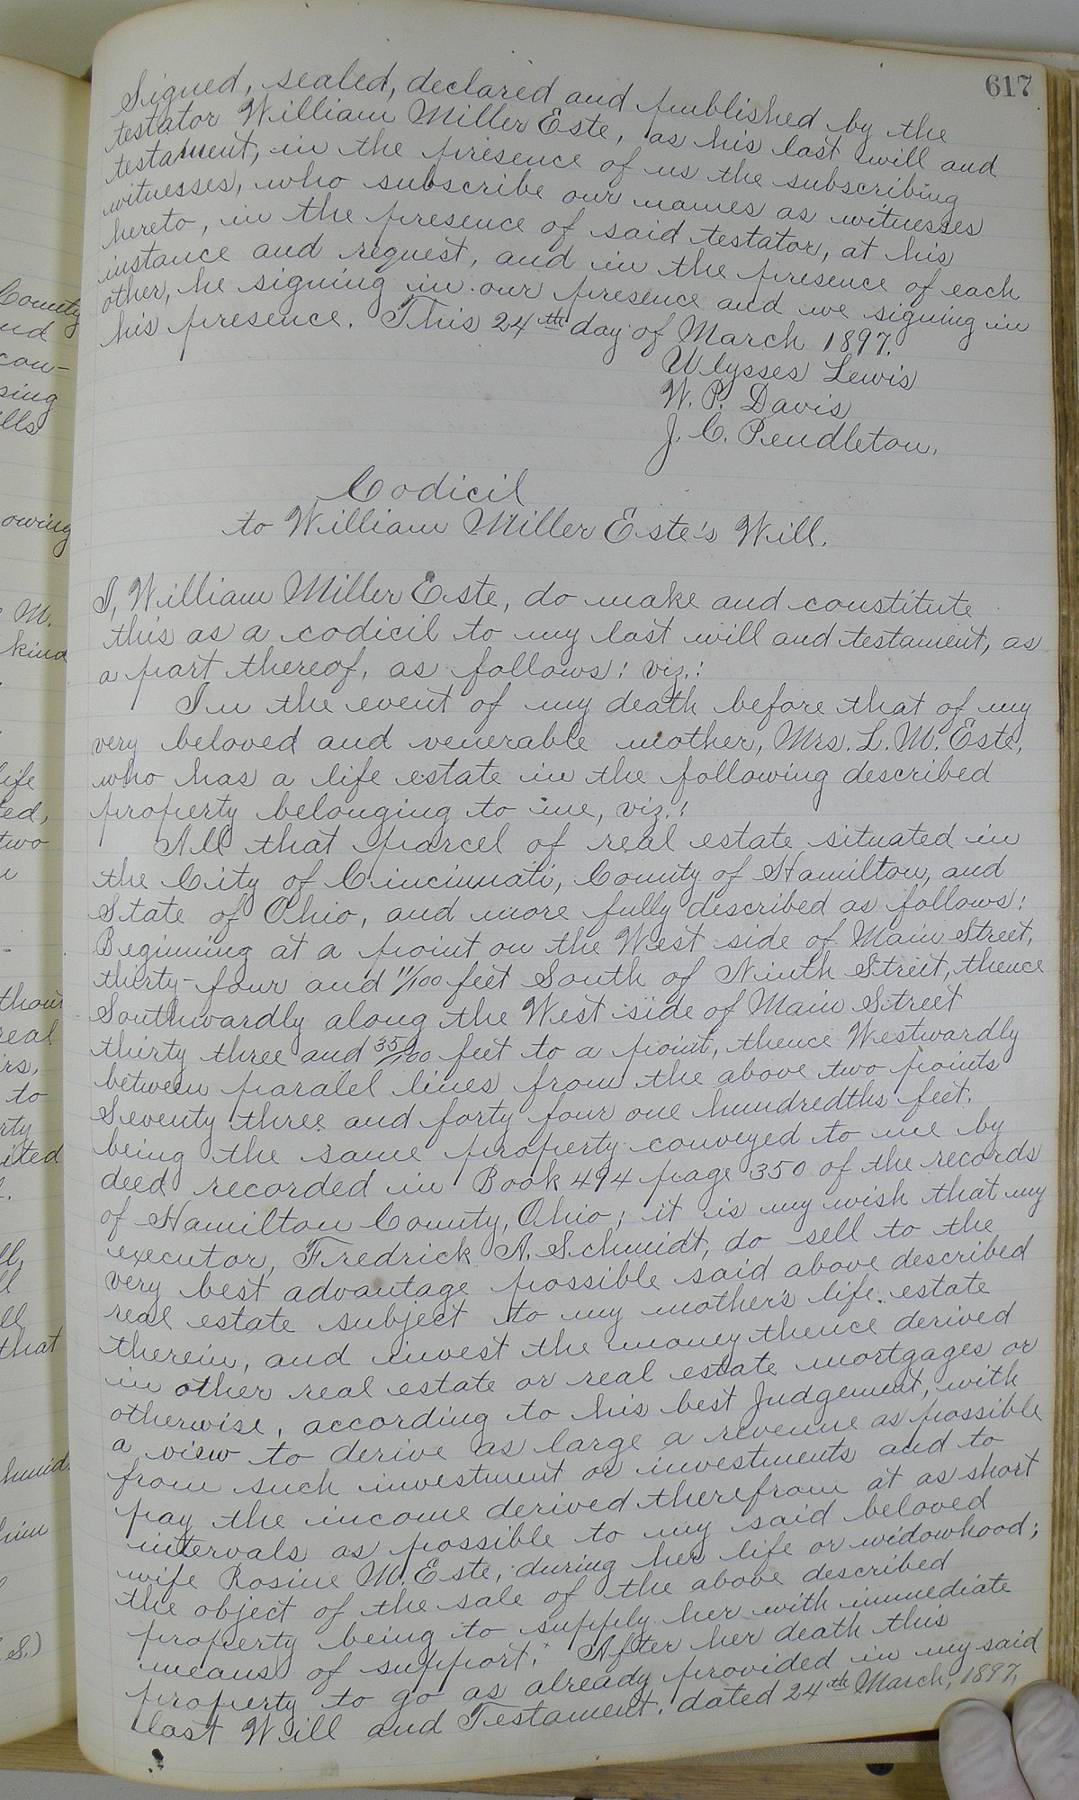 617
Signed, sealed, declared and published by the
testator William Miller Este, as his last will and
testament, in the presence of us the subscribing
witnesses, who subscribe our names as witnesses
hereto, in the presence of said testator, at his
instance and request, and in the presence of each
other, he signing in our presence and we signing in
his presence. This 24th day of March 1897.
Ulysses Lewis
W. P. Davis
J. C. Pendleton.
Codicil
to William Miller Este's Will.
I, William Miller Este, do make and constitute
this as a codicil to my last will and testament, as
a part thereof, as follows: viz.:
In the event of my death before that of my
very beloved and venerable mother, Mrs. L. M. Este,
who has a life estate in the following described
property belonging to me, viz.:
All that parcel of real estate situated in
the City of Cincinnati, County of Hamilton, and
State of Ohio, and more fully described as follows:
Beginning at a point on the West side of Main Street,
thirty-four and 11/100 feet South of Ninth Street, thence
Southwardly along the West side of Main Street
thirty three and 35/100 feet to a point, thence Westwardly
between paralel lines from the above two points
Seventy three and forty four one hundredths feet.
being the same property conveyed to me by
deed recorded in Book 494 page 350 of the records
of Hamilton County, Ohio; it is my wish that my
executor, Fredrick A. Schmidt, do sell to the
very best advantage possible said above described
real estate subject to my mother's life estate
therein, and invest the money thence derived
in other real estate or real estate mortgages or
otherwise, according to his best Judgement, with
a view to derive as large a revenue as possible
from such investment or investments and to
pay the income derived therefrom at as short
intervals as possible to my said beloved
wife Rosine M. Este, during her life or widowhood;
the object of the sale of the above described
property being to supply her with immediate
means of support. After her death this
property to go as already provided in my said
last Will and Testament. dated 24th March, 1897,
County
nd
con-
sing
lls
owing
M.
kind
life
ted,
two
thout
real
rs,
to
rty
ited
ll,
ll
ll
that
hmid
him
S.)